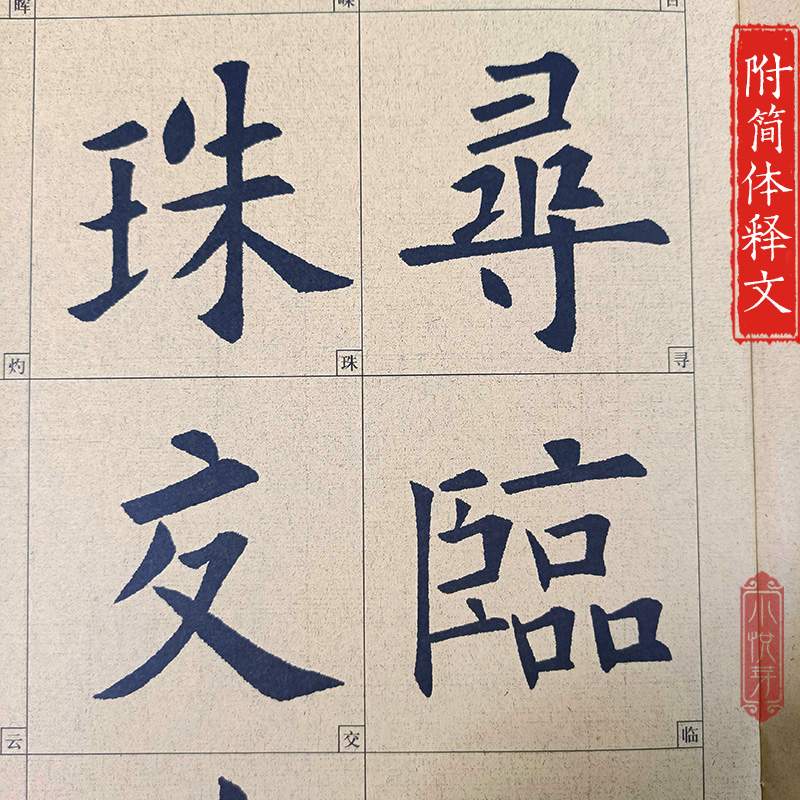 附简体释文
尋
寻
臨
临
珠
珠
交
交
灼
云
小悦芽